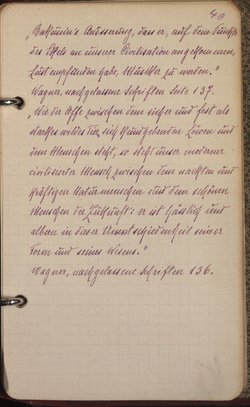 40
„Bakunin's Äusserung, dass er, auf dem Punkte
des Ekels an unserer Civilisation angekommen,
Lust empfunden habe, Musiker zu werden."
Wagner, nachgelassene Schriften Seite 137.
„Wie der Affe zwischen dem sicher und fest als
starkes wildes Tier sich kundgebenden Löwen und
dem Menschen steht, so steht unser moderner
civilisierter Mensch zwischen dem nackten und
kräftigen Naturmenschen und dem schönen
Menschen der Zukunft: er ist hässlich und
albern in dieser Unentschiedenheit seiner
Form und seines Wesens."
Wagner, nachgelassene Schriften 136.